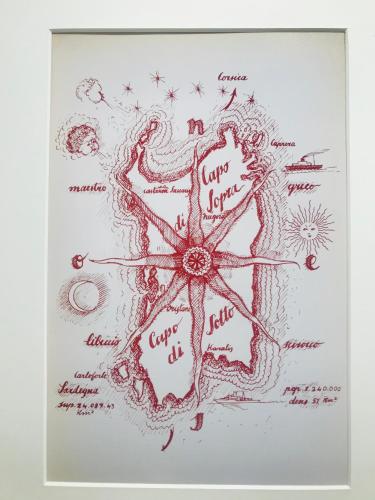 Corsica
n
Caprera
Capo
Sopra
maestro
greco
di
o
e
Capo
di
Sotto
libeccio
scirocco
Carloforte
Sardegna
pop. 1.240.000
sup. 24.089.43
dens 51 Km²
Km²